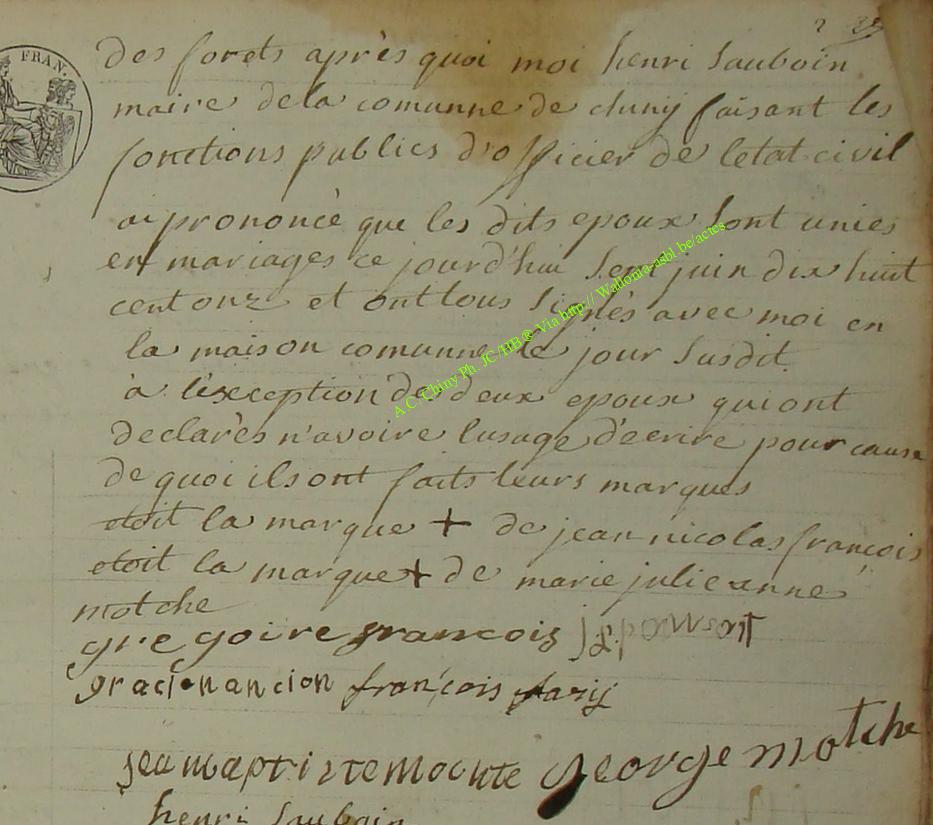 2 
FRAN.
des forets après quoi moi henri Sauboin
maire dela comunne de chiny faisant les
fonctions publics d'officier de letat civil
a prononcé que les dits epoux sont unies
en mariages ce jourd'hui Sept juin dix huit
cent onze et ont tous signés avec moi en
la maison comunne le jour Susdit.
à l'exception des deux epoux qui ont
declarès n'avoire lusage d'ecrire pour cause
de quoi ils ont faits leurs marques
etoit la marque + de jean nicolas françois
etoit la marque + de marie julienne
motche
gregoire francois
françois
george motche
henri Sauboin
A.C. Chiny Ph. JC /HB® Via http:// Wallonia-asbl.be/actes